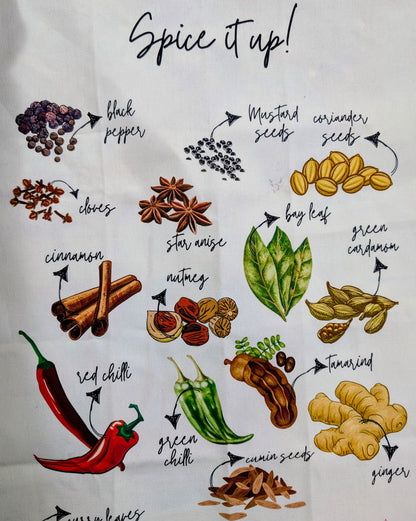 Spice it up!
black
pepper
Mustard
seeds
coriander
seeds
cloves
star anise
bay leaf
green
cardamom
cinnamon
nutmeg
red chilli
tamarind
green
chilli
cumin seeds
ginger
curry leaves